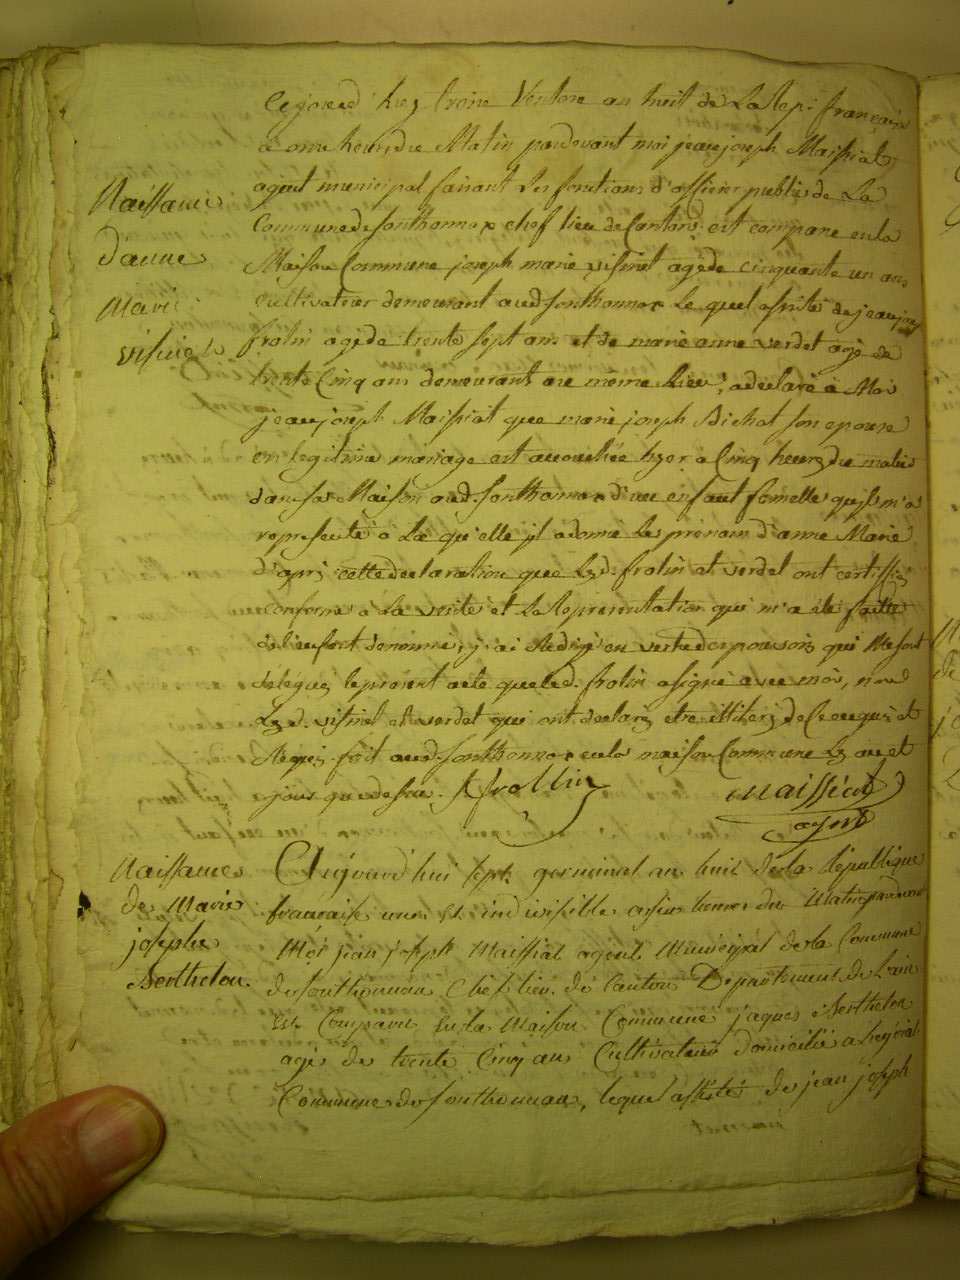 Cejourd'huy troise Ventose an huit de La Rep. française
à onze heures du Matin pardevant moi jean joseph Maissiat
agent municipal faisant Les fonctions d'officier public de La
Commune de sonthonnax chef lieu de Canton est comparu en la
Maison Commune joseph marie visinet agé de cinquante un ans
cultivateur demeurant aud sonthonnax Le quel assisté de jean joseph
frolin agé de trente sept ans et de marie anne verdet agé de
trente Cinq ans demeurant au même Lieu, a declaré à Moi
jean joseph Maissiat que marie joseph Bichat son epouse
en legitime mariage est accouchée hyer à Cinq heures du matin
dans sa Maison aud. sonthonnax d'une enfant femelle qu'il m'a
representé à La qu'elle il a donné Les prenom d'anne Marie
d'après cette declaration que Lesd. frolin et verdet ont certiffié
conforme a La verité et La representation qui m'a été faitte
de l'enfant denommé, j'ai Redigé en vertu des pouvoirs qui me sont
delegués le present acte que led. frolin a signé avec moi, non
Lesd. visinet et verdet qui ont declaré etre illiteré de ce enquis et
Requis fait aud. sonthonnax en la maison Commune Les an et
jour que dessus. J frollin Maissiat
agent
Naissance
d'anne
Marie
visinet
Aujourd'hui sept germinal an huit de la République
francaise une et indivisible a six heures du Matin pardevant
Moi jean joseph Maissiat agent Municipal de la Commune
de sonthonnax Chef lieu de Canton Departement de L'ain
est Comparu en la Maison Commune jaques Berthelon
agé de trente Cinq ans Cultivateur domicilié a
Commune de sonthonnax, lequel assisté de jean joseph
Naissance
de Marie
josephe
Berthelon.